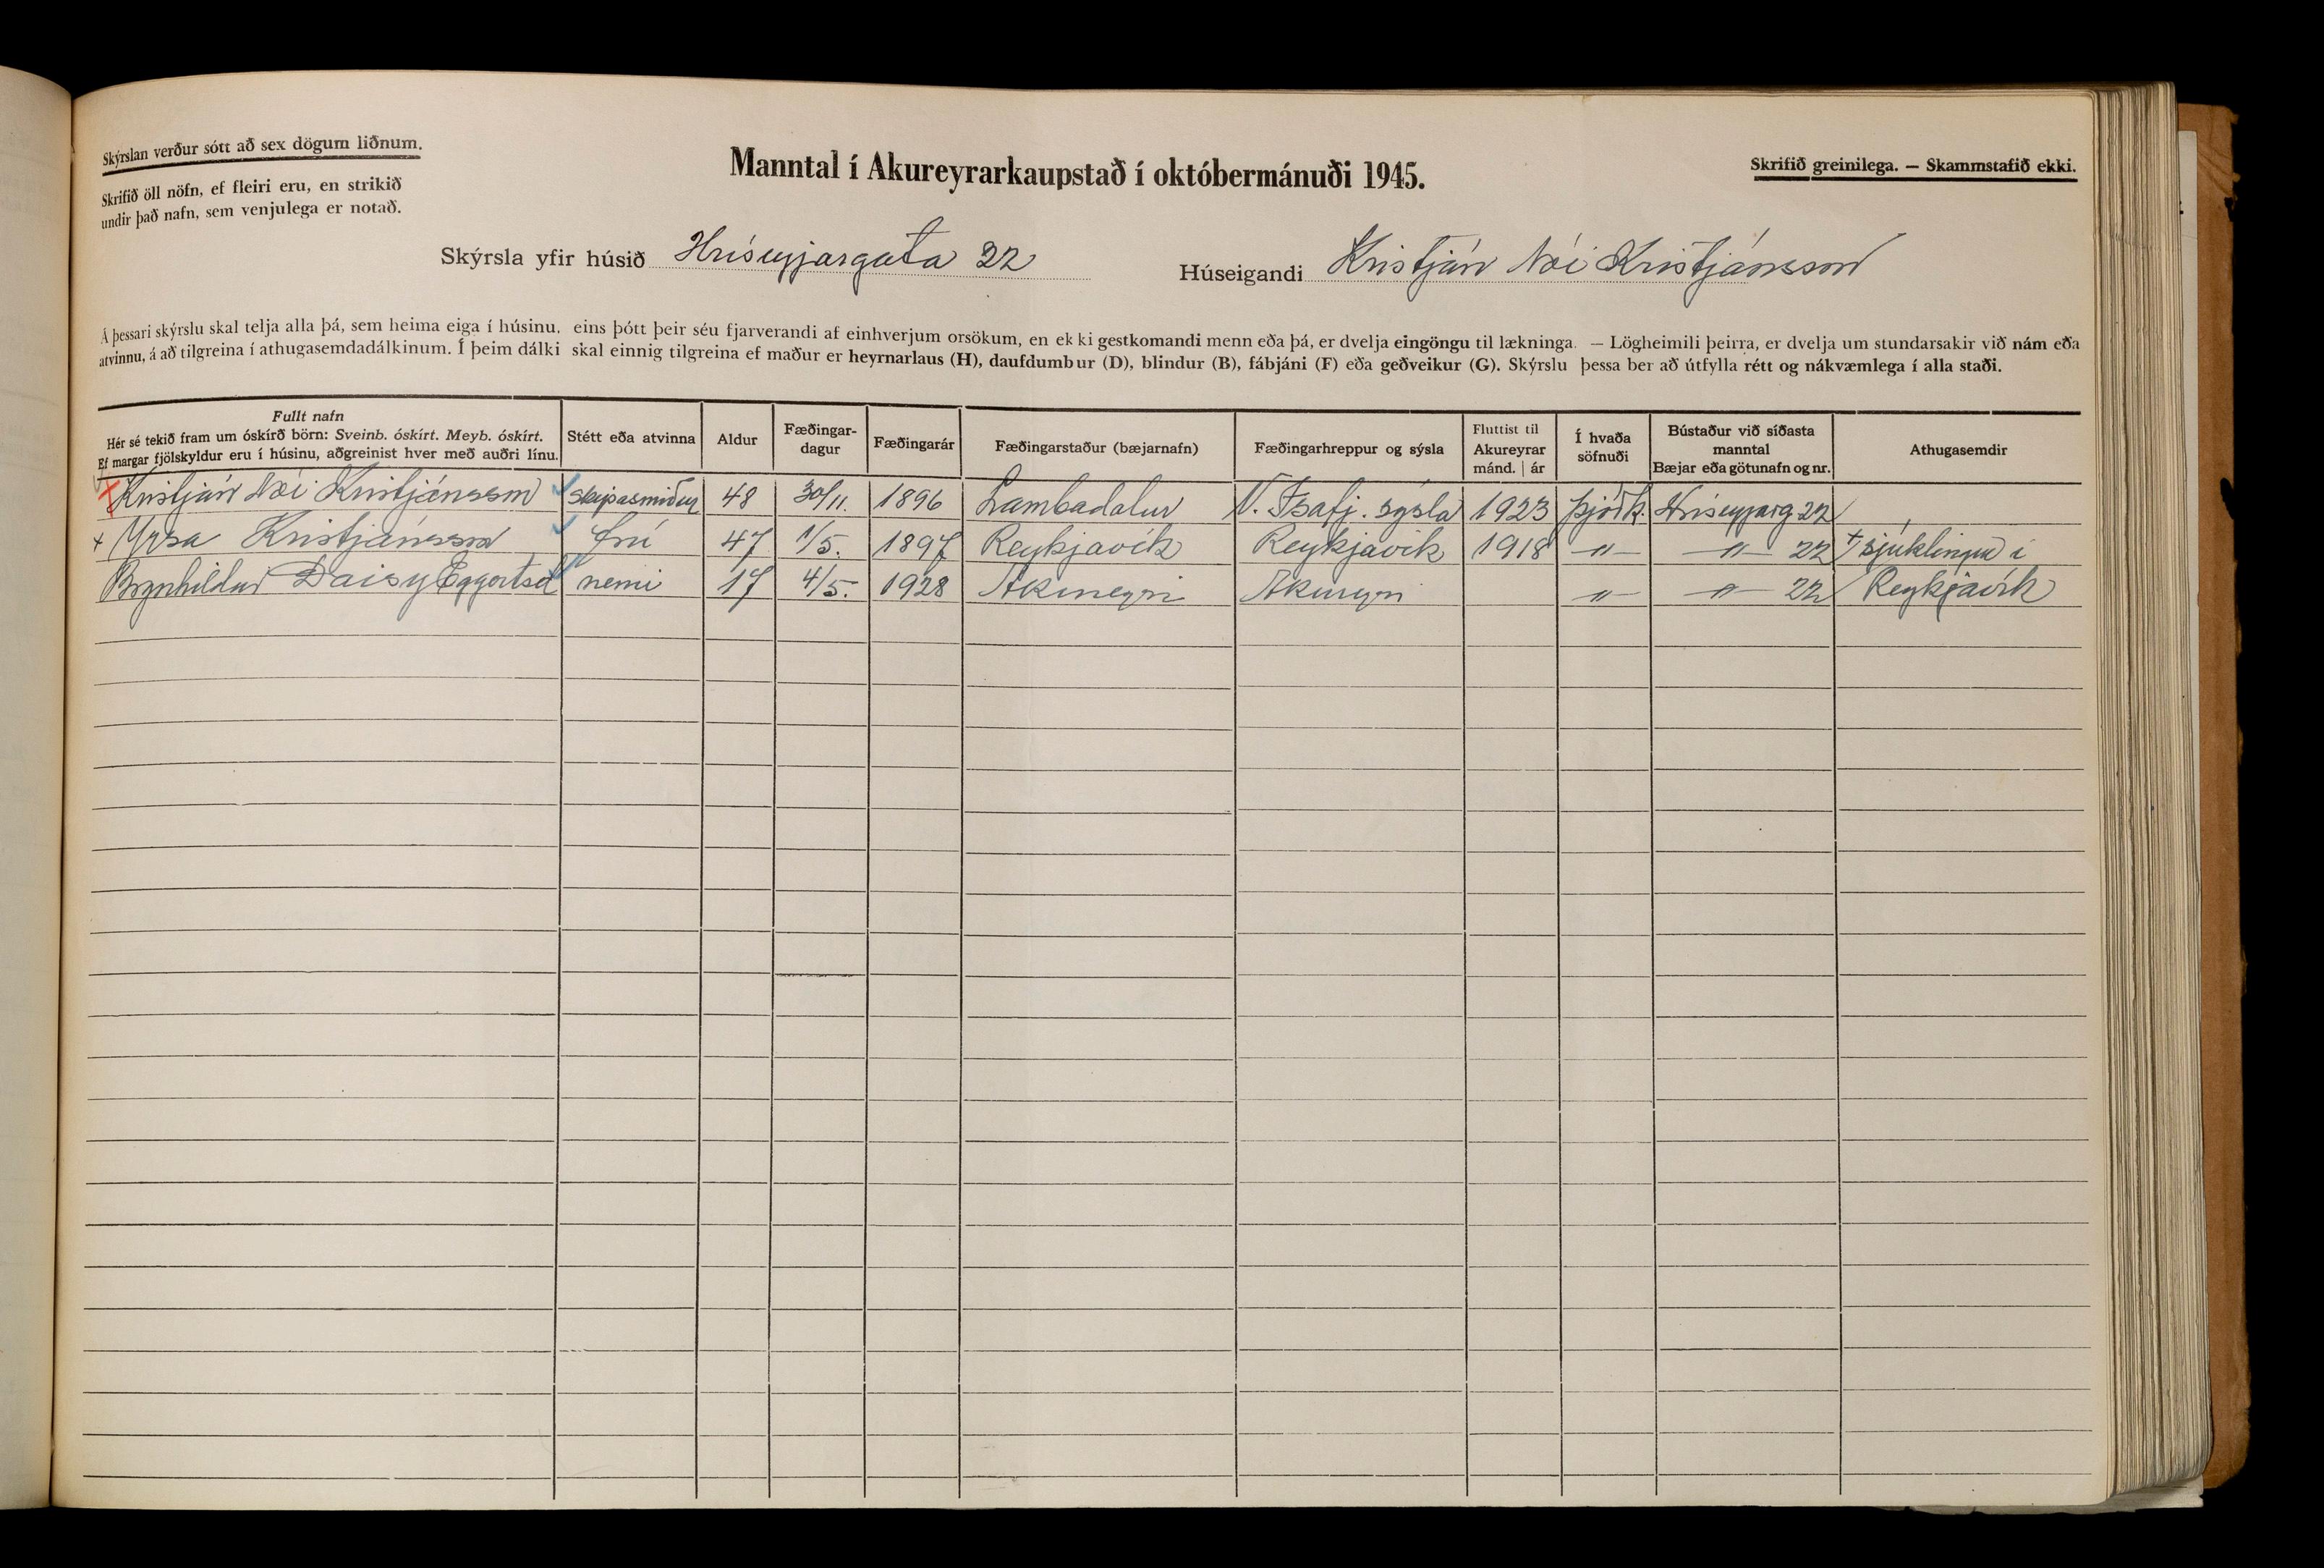 Skýrslan verður sótt að sex dögum liðnum.
Skrifið öll nöfn, ef fleiri eru, en strikið
undir það nafn, sem venjulega er notað.
Manntal í Akureyrarkaupstað í októbermánuði 1945.
Skrifið greinilega. — Skammstafið ekki.
Skýrsla yfir húsið Hríseyjargata 22
Húseigandi Kristján Nói Kristjánsson
Á þessari skýrslu skal telja alla þá, sem heima eiga í húsinu, eins þótt þeir séu fjarverandi af einhverjum orsökum, en ekki gestkomandi menn eða þá, er dvelja eingöngu til lækninga. — Lögheimili þeirra, er dvelja um stundarsakir við nám eða
atvinnu, á að tilgreina í athugasemdadálkinum. Í þeim dálki skal einnig tilgreina ef maður er heyrnarlaus (H), daufdumbur (D), blindur (B), fábjáni (F) eða geðveikur (G). Skýrslu þessa ber að útfylla rétt og nákvæmlega í alla staði.
Fullt nafn
Hér sé tekið fram um óskírð börn: Sveinb. óskírt. Meyb. óskírt.
Ef margar fjölskyldur eru í húsinu, aðgreinist hver með auðri línu.
Stétt eða atvinna
Aldur
Fæðingar-
dagur
Fæðingarár
Fæðingarstaður (bæjarnafn)
Fæðingarhreppur og sýsla
Fluttist til
Akureyrar
mánd. | ár
Í hvaða
söfnuði
Bústaður við síðasta
manntal
Bæjar eða götunafn og nr.
Athugasemdir
Kristján Nói Kristjánsson skipasmiður 48 30/11. 1896 Lambadalur V. Ísafj. sýsla 1923 Þjóðk. Hríseyjarg 22
+ Yrsa Kristjánsson frú 47 1/5. 1897 Reykjavík Reykjavík 1918 —〃— —〃— 22 + sjúklingur í
Brynhildur Daisy Eggertsd nemi 17 4/5. 1928 Akureyri Akureyri —〃— —〃— 22 Reykjavík